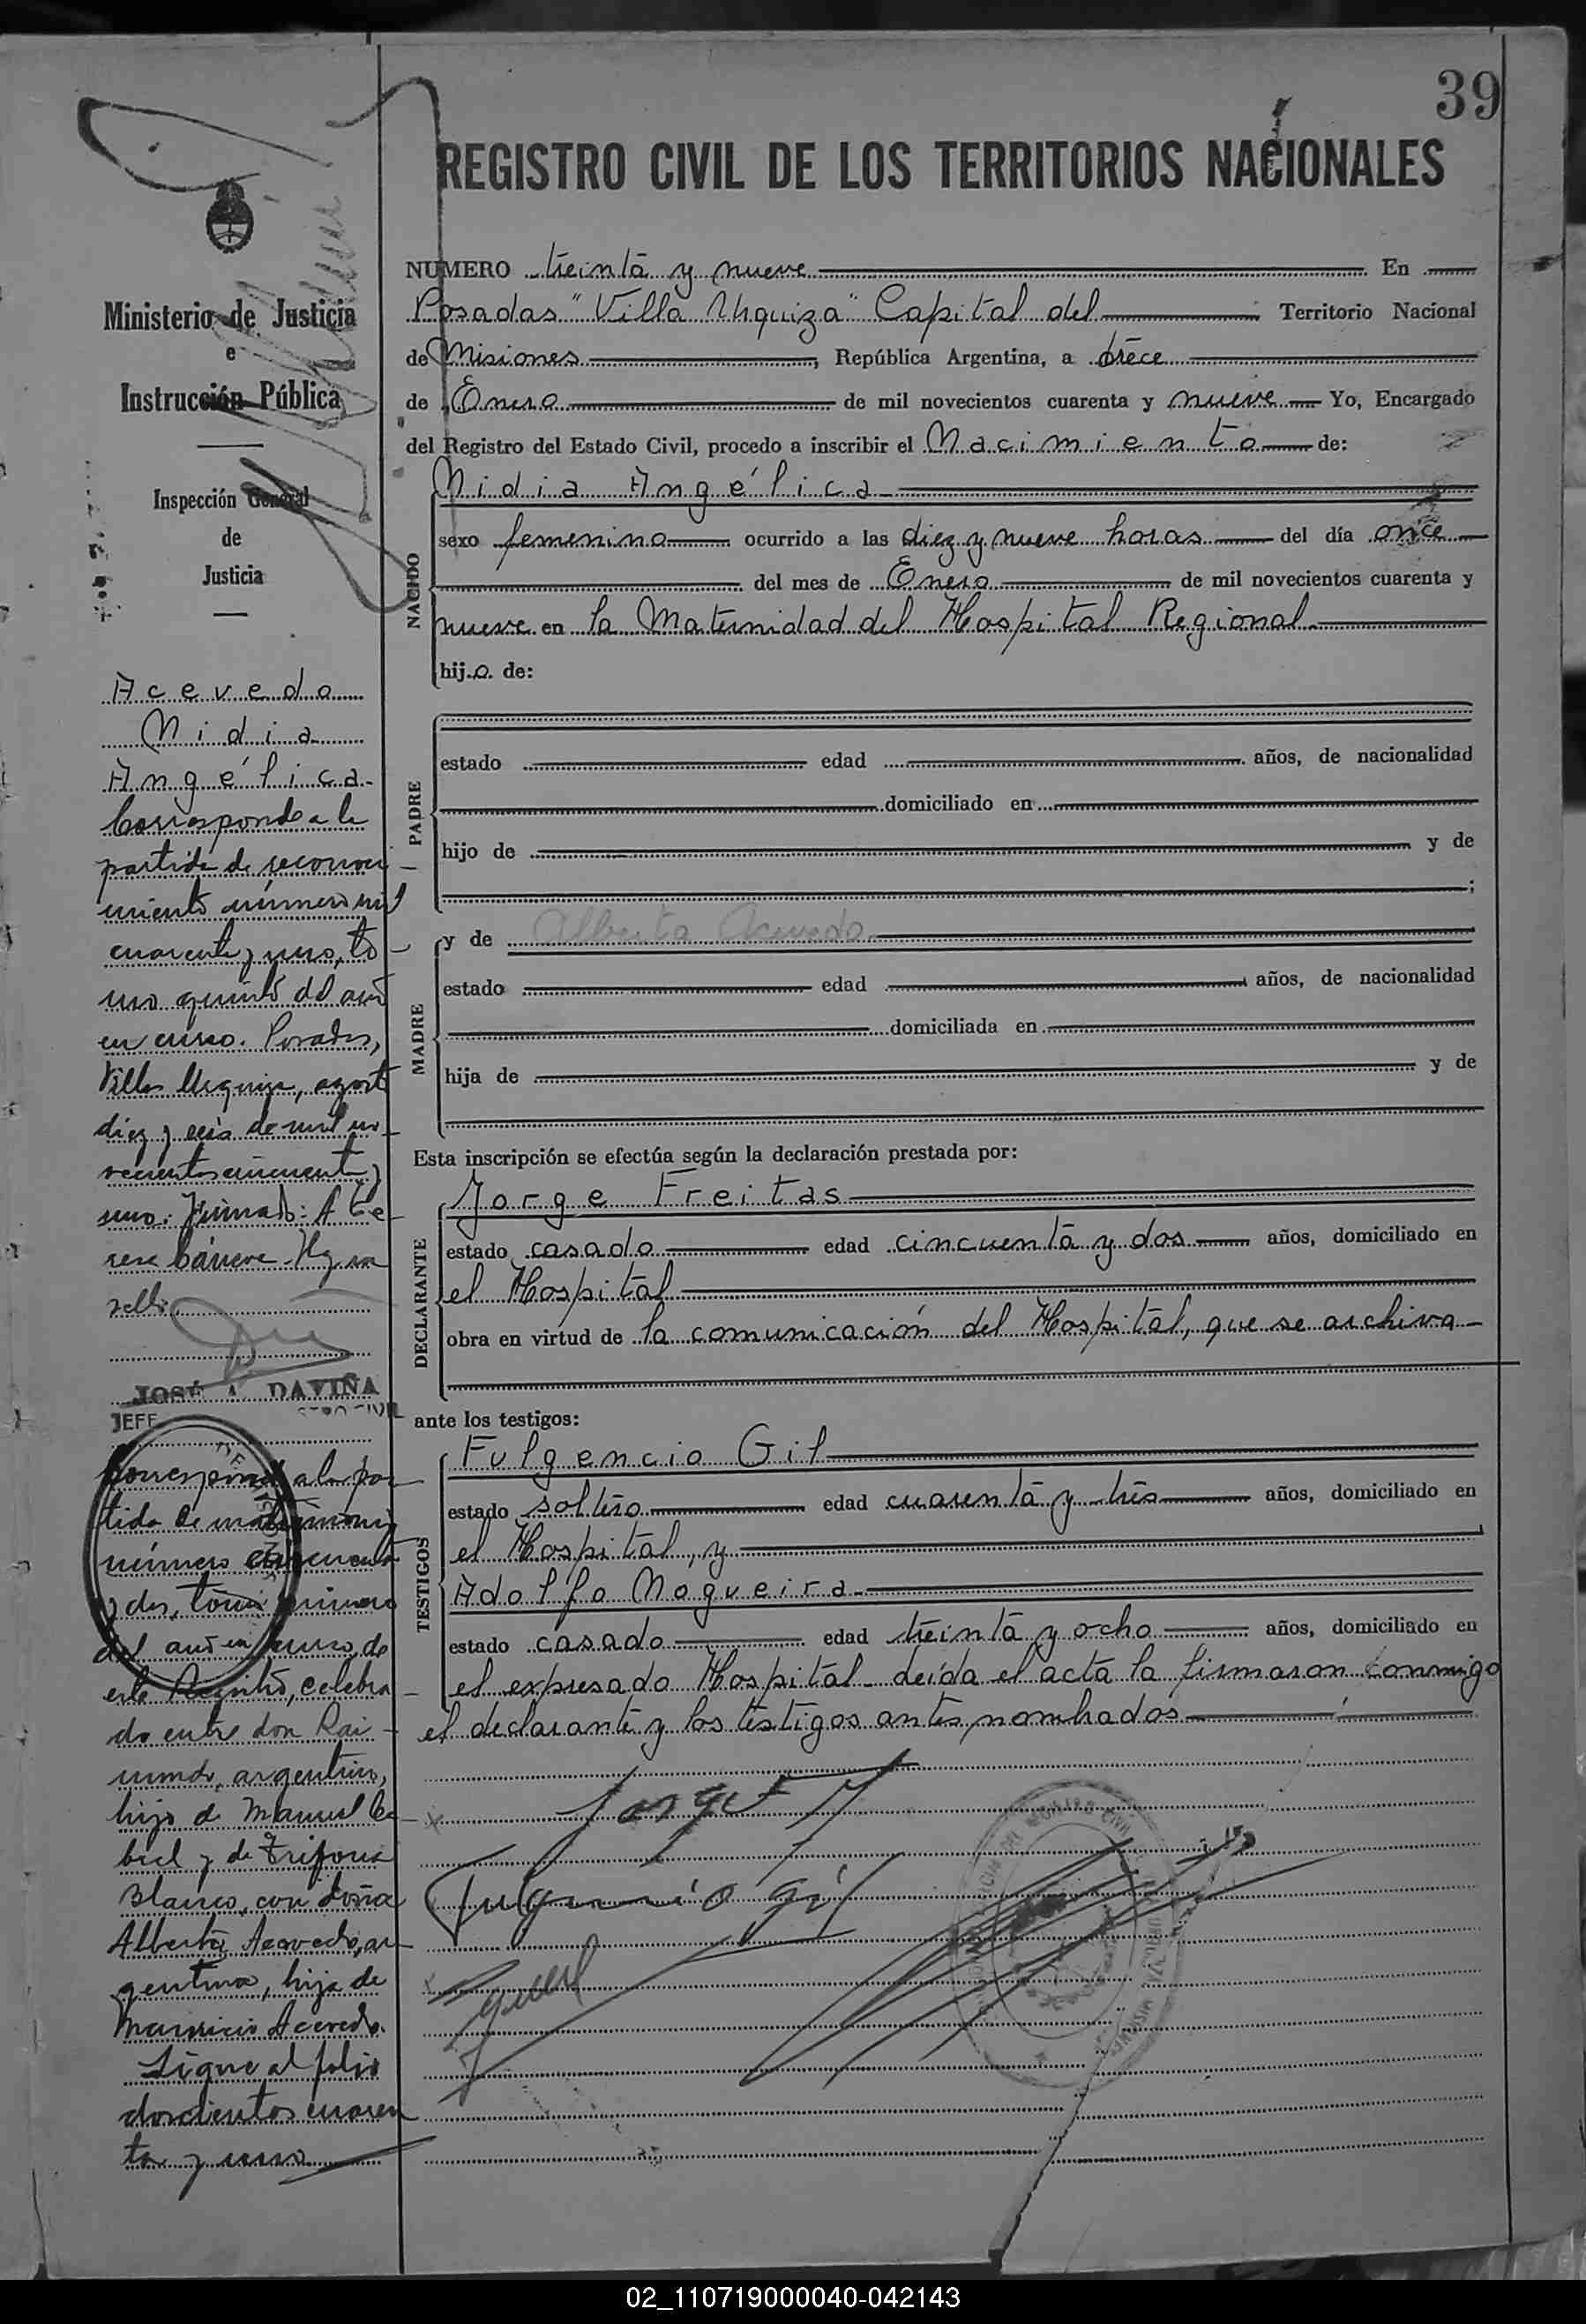 39
REGISTRO CIVIL DE LOS TERRITORIOS NACIONALES
Ministerio de Justicia
e
Instrucción Pública
Inspección General
de
Justicia
Acevedo
Nidia
Angélica
Corresponde a la
partida de reconoci
miento número mil
cuarenta y uno, to
mo quinto del año
en curso. Posadas,
Villa Urquiza, agosto
diez y seis de mil no
vecientos cincuenta y
uno. Firmado: A Te
resa Hay un
sello.
JOSÉ A. DAVIÑA
JEFE
Corresponde a la par
tida de matrimonio
número cincuenta
y dos, tomo primero
del año en curso, de
este Registro, celebra
do entre don Rai
mundo, argentino,
hijo de Manuel Ca
bral y de Trifona
Blanco, con doña
Alberta Acevedo, ar
gentina, hija de
Mauricio Acevedo.
Sigue al folio
doscientos cuaren
ta y uno
NUMERO treinta y nueve En
Posadas "Villa Urquiza" Capital del Territorio Nacional
de Misiones, República Argentina, a trece
de Enero de mil novecientos cuarenta y nueve Yo, Encargado
del Registro del Estado Civil, procedo a inscribir el Nacimiento de:
NACIDO
Nidia Angélica
sexo femenino ocurrido a las diez y nueve horas del día once
del mes de Enero de mil novecientos cuarenta y
nueve en la Maternidad del Hospital Regional
hija de:
PADRE
estado edad años, de nacionalidad
domiciliado en
hijo de y de
;
MADRE
y de Alberta Acevedo
estado edad años, de nacionalidad
domiciliada en
hija de y de
Esta inscripción se efectúa según la declaración prestada por:
DECLARANTE
Jorge Freitas
estado casado edad cincuenta y dos años, domiciliado en
el Hospital
obra en virtud de la comunicación del Hospital, que se archiva
ante los testigos:
TESTIGOS
Fulgencio Gil
estado soltero edad cuarenta y tres años, domiciliado en
el Hospital, y
Adolfo Nogueira
estado casado edad treinta y ocho años, domiciliado en
el expresado Hospital leída el acta la firmaron conmigo
el declarante y los testigos antes nombrados
Jorge F
Fulgencio Gil
02_110719000040-042143